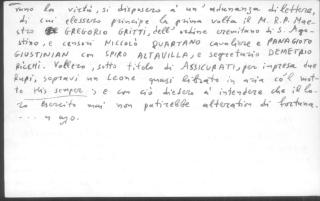 rono la virtù, si disposero a un' adunanza di lettere,
di cui elessero principe la prima volta il M. R. P. Mae-
stro GREGORIO GRITTI, dell'ordine eremitano di S. Ago-
stino, e censori NICCOLÒ QUARTANO cavaliere e PANAGIOTO
GIUSTINIAN con SPIRO ALTAVILLA, e segretario DEMETRIO
Vollero, sotto titolo di ASSICURATI, per impresa due
Rupi, sopravi un Leone quasi librato in aria co'l mot-
to his semper, e con ciò diedero a intendere che il lo-
ro esercito mai non patirebbe alteration di fortuna.